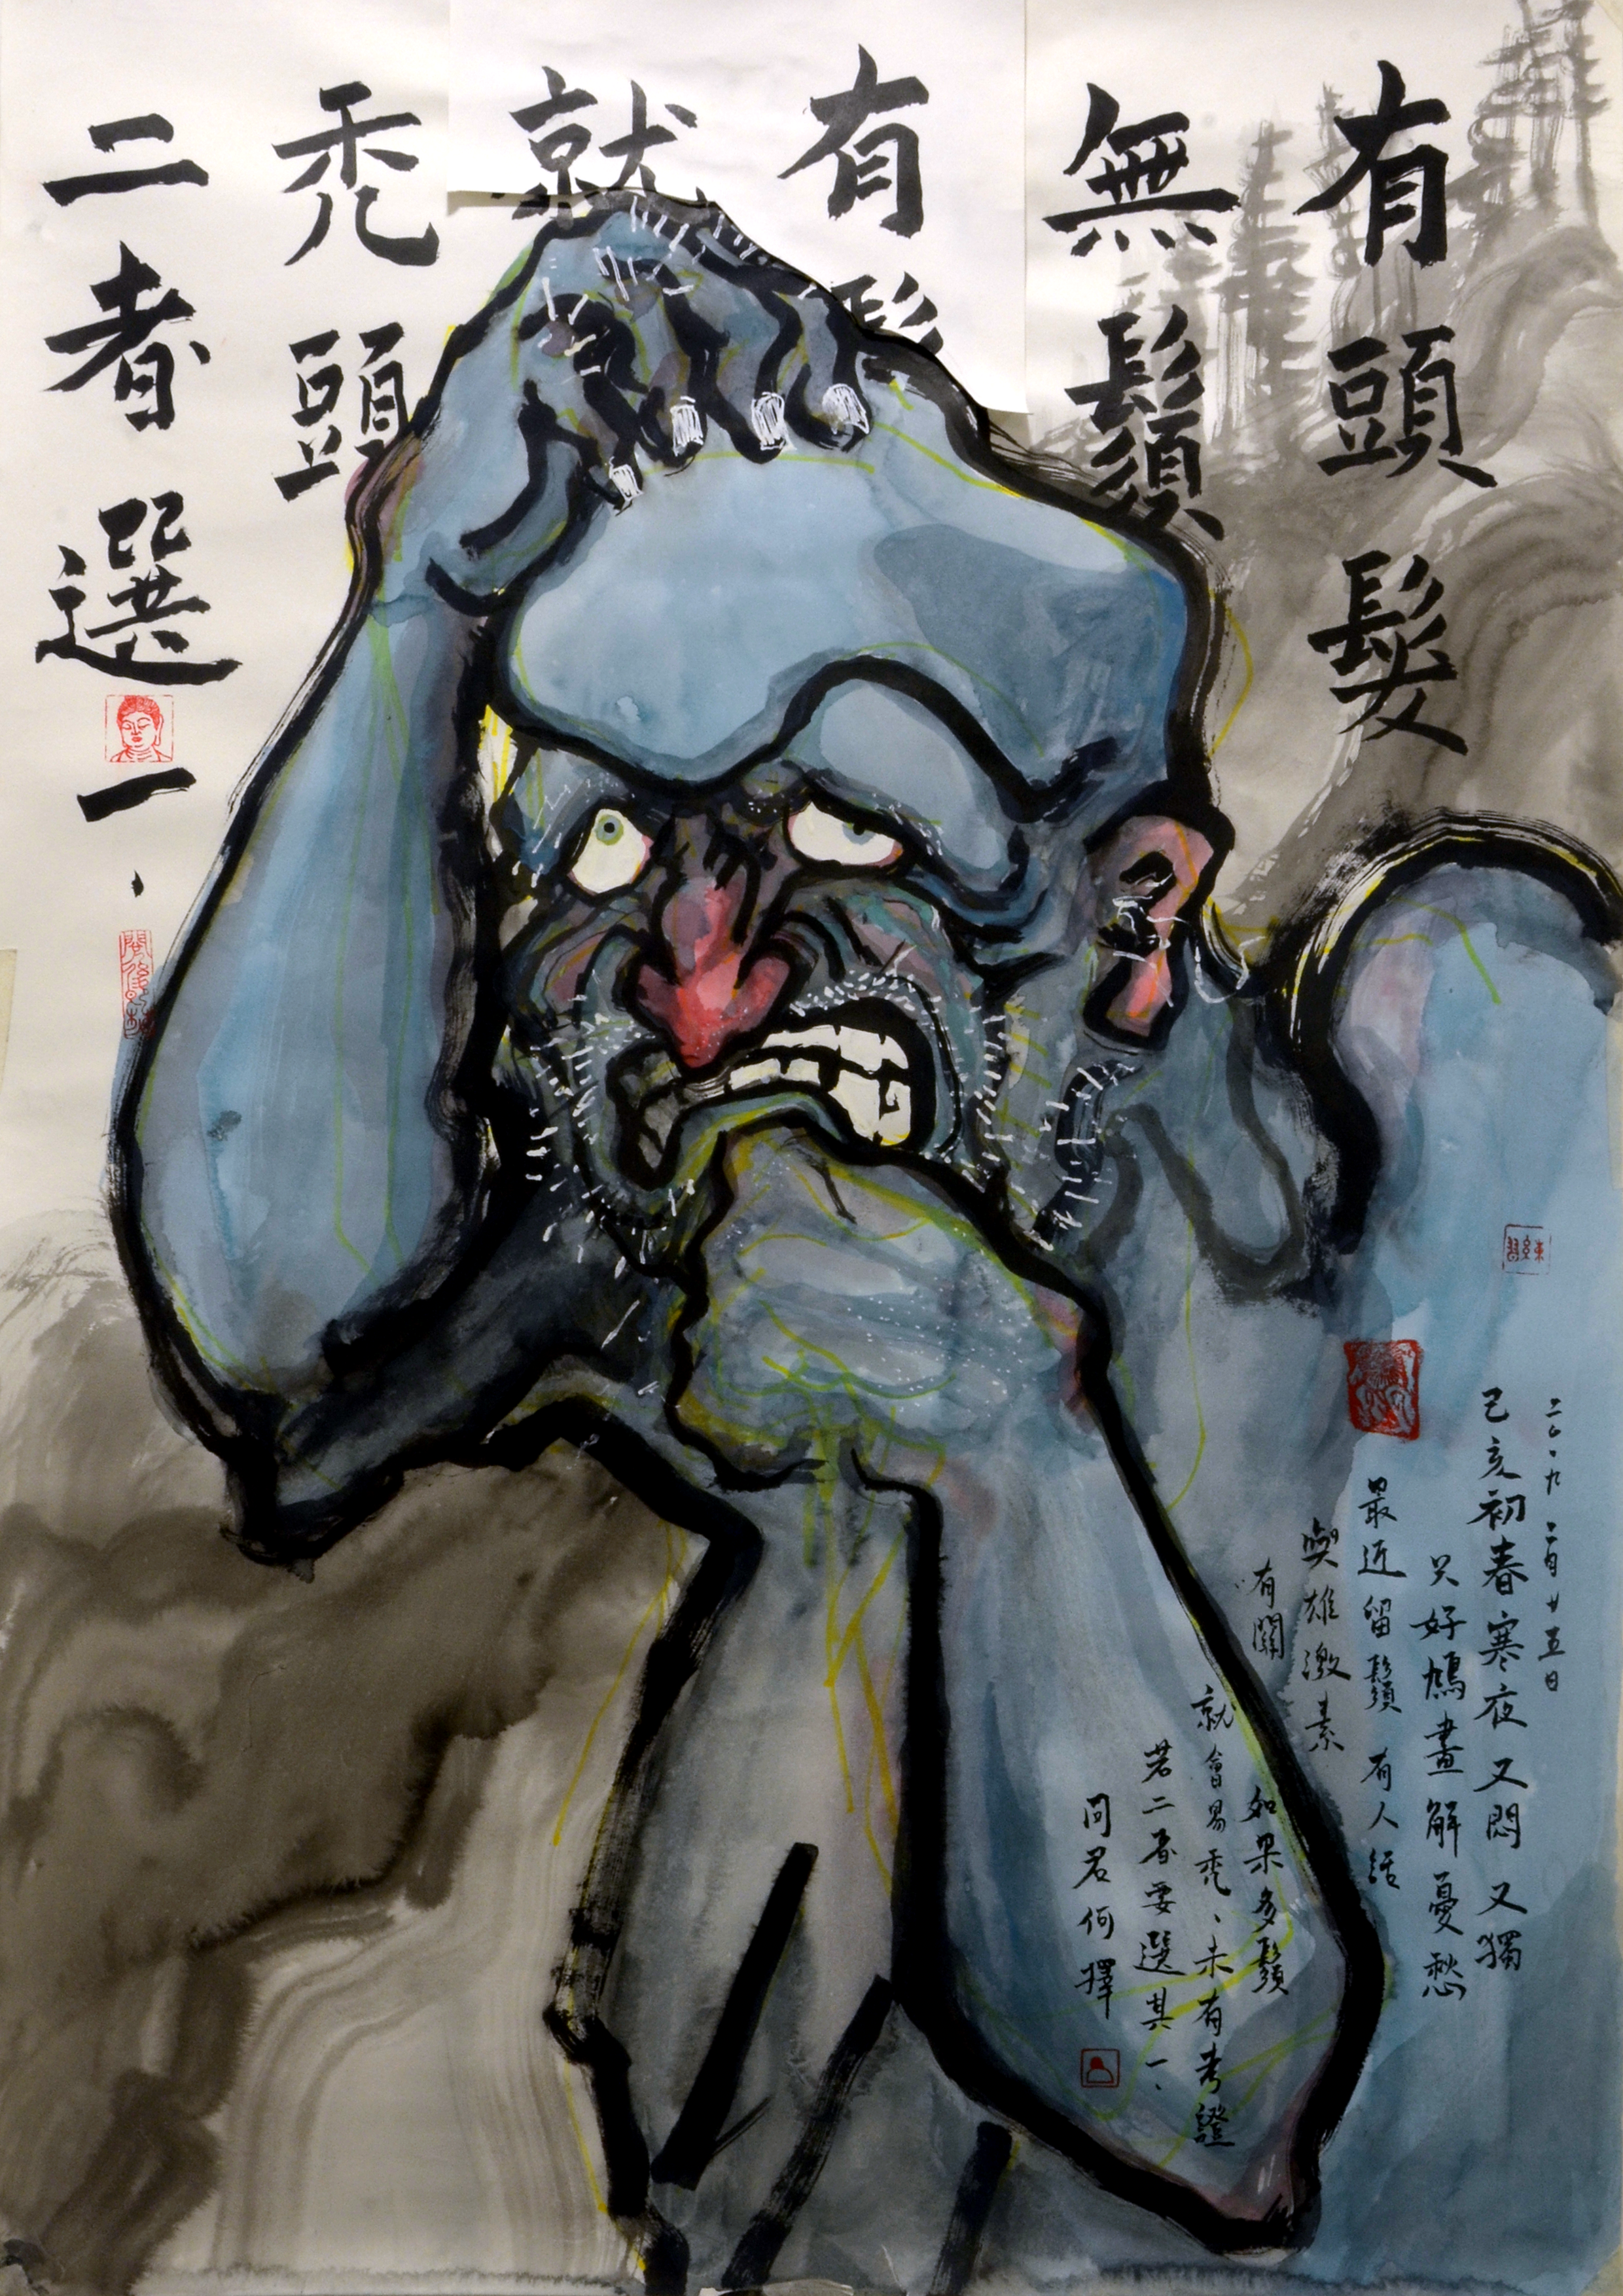 有頭髮
無鬚
有鬚
就
禿頭
二者選一、
二〇一九 二月廿五日
己亥初春寒夜又悶又獨
只好鳩畫解憂愁
最近留鬚 有人話
與雄激素
有關
如果多鬚
就會易禿、未有考證
若二者要選其一、
問君何擇